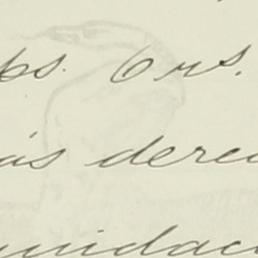 ps. 6 rs.
ás derec
unidac